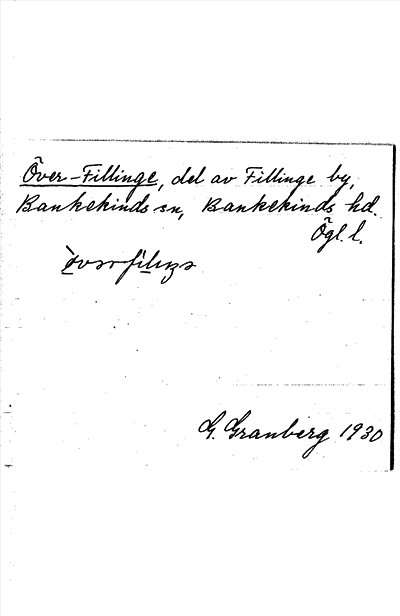 Över-Fillinge, del av Fillinge by,
Bankekinds sn, Bankekinds hd.
Ögl. l.
G. Granberg 1930